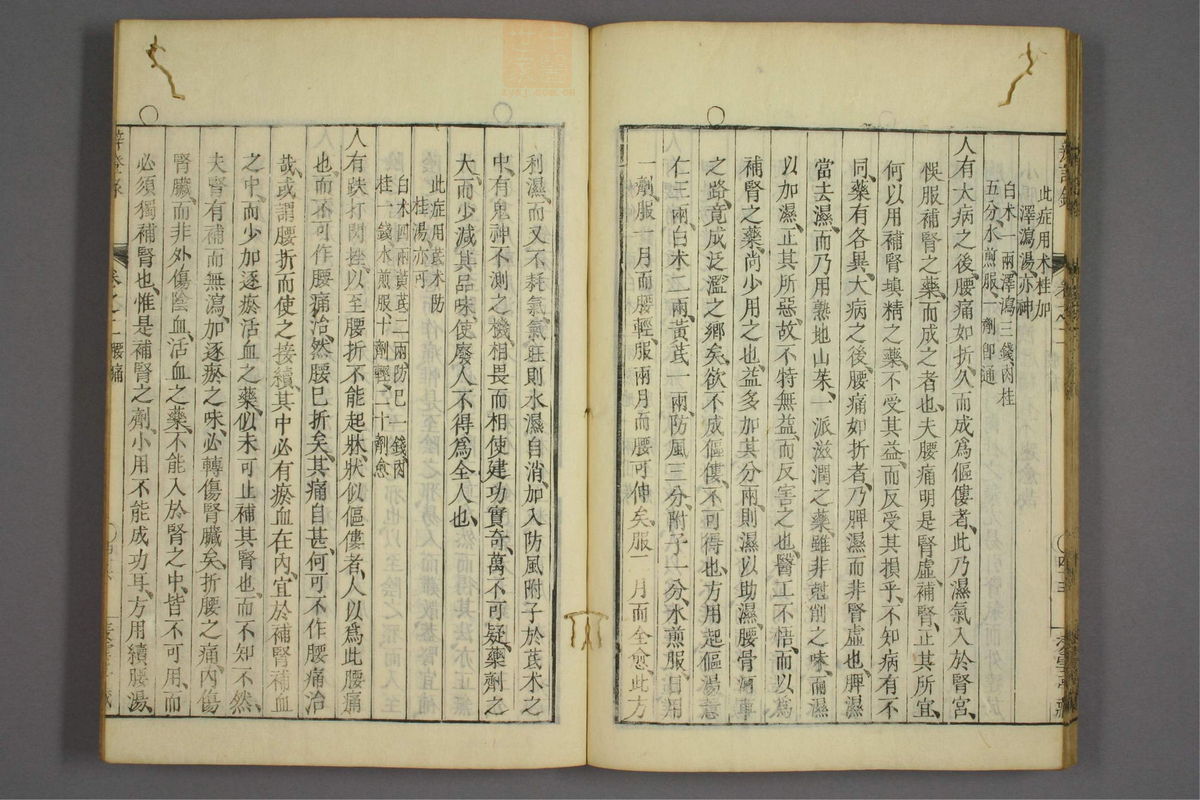 此症用术桂加
澤瀉湯亦神
白术一兩澤瀉三錢肉桂
五分水煎服一劑卽通
人有大病之後腰痛如折久而成爲傴僂者此乃濕氣入於腎宮
悞服補腎之藥而成之者也夫腰痛明是腎虛補腎正其所宜
何以用補腎塡精之藥不受其益而反受其損乎不知病有不
同藥有各異大病之後腰痛如折者乃脾濕而非腎虛也脾濕
當去濕而乃用熟地山茱一派滋潤之藥雖非剋削之味而濕
以加濕正其所惡故不特無益而反害之也醫工不悟而以爲
補腎之藥尚少用之也益多加其分兩則濕以助濕腰骨河車
之路竟成泛濫之鄉矣欲不成傴僂不可得也方用起傴湯薏
仁三兩白术二兩黃芪一兩防風三分附子一分水煎服日用
一劑服一月而腰輕服兩月而腰可伸矣服三月而全愈此方
利濕而又不耗氣氣旺則水濕自消加入防風附子於芪术之
中有鬼神不測之機相畏而相使建功實奇萬不可疑藥劑之
大而少減其品味使廢人不得爲全人也
此症用芪术防
桂湯亦可
白术四兩黃芪二兩防已一錢肉
桂一錢水煎服十劑輕二十劑愈
人有跌打閃挫以至腰折不能起牀狀似傴僂者人以爲此腰痛
也而不可作腰痛治然腰已折矣其痛自甚何可不作腰痛治
哉或謂腰折而使之接續其中必有瘀血在內宜於補腎補血
之中而少加逐瘀活血之藥似未可止補其腎也而不知不然
夫腎有補而無瀉加逐瘀之味必轉傷腎臟矣折腰之痛內傷
腎臟而非外傷陰血活血之藥不能入於腎之中皆不可用而
必須獨補腎也惟是補腎之劑小用不能成功耳方用續腰湯
卷之二 腰痛